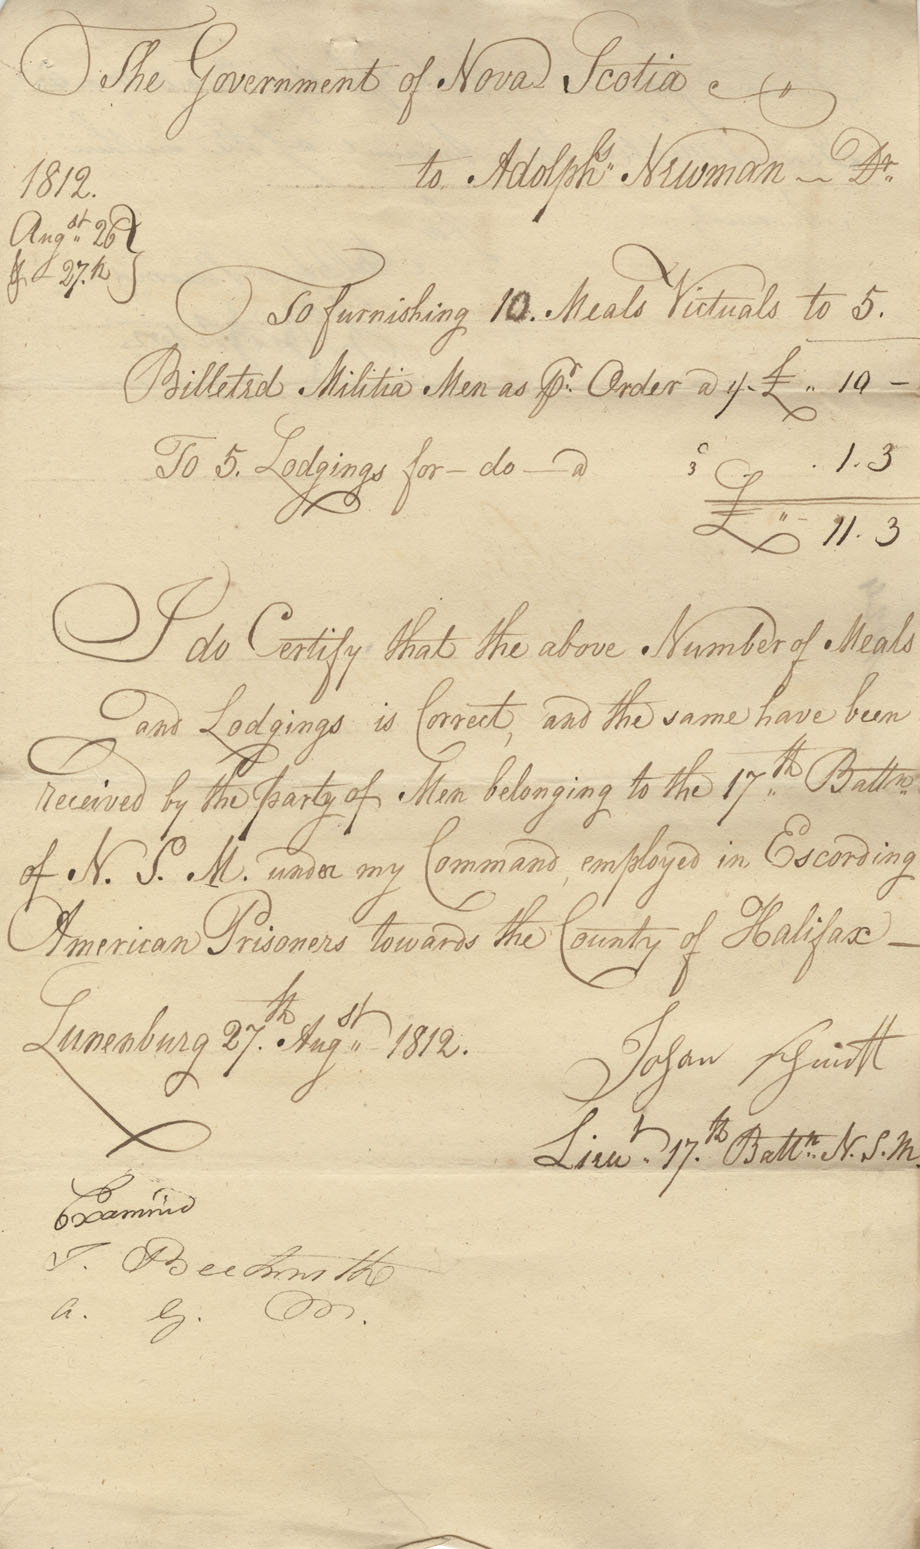 The Government of Nova Scotia
to Adolphs. Newman — Dr.
1812.
Augst. 26
& - 27.th
To furnishing 10. Meals Victuals to 5.
Billeted Militia Men as pr. Order a 1/- £ " 10 -
To 5. Lodgings for - do - a 3 . 1. 3
£ " - 11. 3
I do Certify that the above Number of Meals
and Lodgings is Correct, and the same have been
received by the party of Men belonging to the 17th. Battn.
of N. S. M. under my Command, employed in Escording
American Prisoners towards the County of Halifax —
Lunenburg 27th. Augst. 1812.
Johan
Lieut. 17.th Battn. N. S. M.
Examined
T. Beckwith
A. G. M.